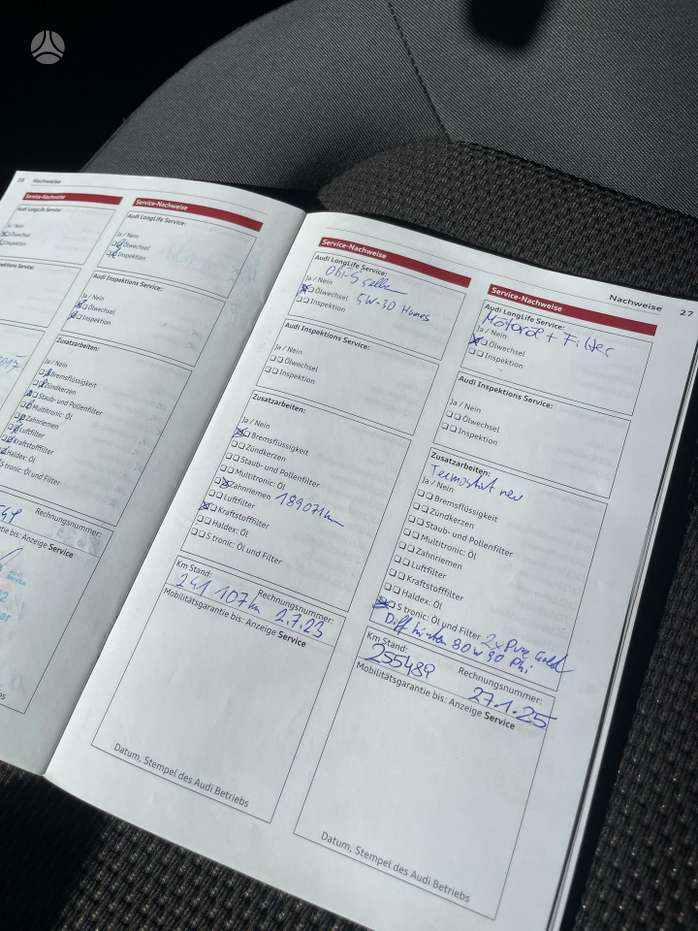 Nachweise
Service-Nachweise
Audi LongLife Service:
Ja / Nein
Ölwechsel
Inspektion
Audi Inspektions Service:
Ja / Nein
Ölwechsel
Inspektion
Zusatzarbeiten:
Ja / Nein
Bremsflüssigkeit
Zündkerzen
Staub- und Pollenfilter
Multitronic: Öl
Zahnriemen
Luftfilter
Kraftstofffilter
Haldex: Öl
S tronic: Öl und Filter
Rechnungsnummer:
Anzeige Service
Service-Nachweise
Audi LongLife Service:
Ja / Nein
Ölwechsel 5W-30
Inspektion
Audi Inspektions Service:
Ja / Nein
Ölwechsel
Inspektion
Zusatzarbeiten:
Ja / Nein
Bremsflüssigkeit
Zündkerzen
Staub- und Pollenfilter
Multitronic: Öl
Zahnriemen 189071km
Luftfilter
Kraftstofffilter
Haldex: Öl
S tronic: Öl und Filter
Km Stand: Rechnungsnummer:
241 107km 2.7.23
Mobilitätsgarantie bis: Anzeige Service
Datum, Stempel des Audi Betriebs
Nachweise 27
Service-Nachweise
Audi LongLife Service:
Motoroel + Filter
Ja / Nein
Ölwechsel
Inspektion
Audi Inspektions Service:
Ja / Nein
Ölwechsel
Inspektion
Zusatzarbeiten:
Termostat neu
Ja / Nein
Bremsflüssigkeit
Zündkerzen
Staub- und Pollenfilter
Multitronic: Öl
Zahnriemen
Luftfilter
Kraftstofffilter
Haldex: Öl
S tronic: Öl und Filter 2x Pure Gold
Diff hinten 80W90
Km Stand: Rechnungsnummer:
255489 27.1.25
Mobilitätsgarantie bis: Anzeige Service
Datum, Stempel des Audi Betriebs